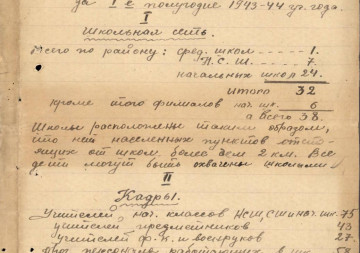 да I е полугодие 1943-44 уч. года.
I
Школьная сеть.
Всего по району: сред. школ — 1.
Н.С.Ш. — 7.
начальных школ 24.
итого 32
кроме этого филиалов нач. шк. 6
а всего 38.
Школы расположены таким образом,
что нет населенных пунктов отсто-
ящих от школ, более чем 2 км. Все
дети могут быть охвачены школами
II
Кадры.
Учителей нач. классов НСШ, СШ и нач. шк. 75
учителей предметников 43
учителей ф. к. и военруков 27.
работающих в шк. 58